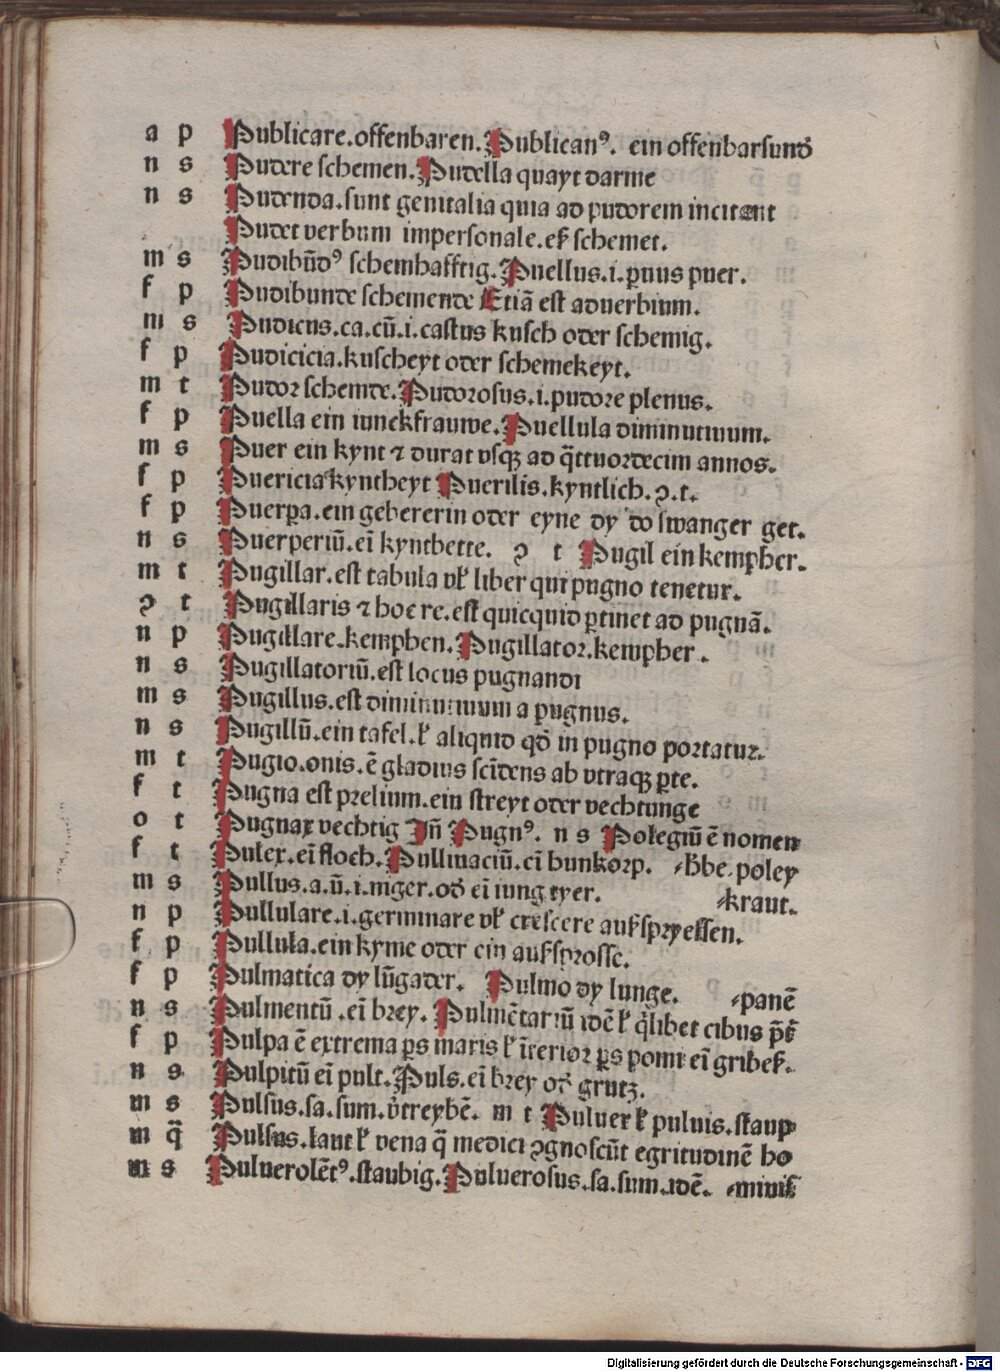 a p Publicare.offenbaren.Publicanꝰ. ein offenbarsund̄
n s Pudere schemen.Pudella quayt darme
n s Pudenda.sunt genitalia quia ad pudorem incitant
Pudet verbum impersonale.eß schemet.
m s Pudibūdꝰ schemhafftig.Puellus.i.paruus puer.
f p Pudibunde schemende Etiā est aduerbium.
m s Pudicus.ca.cū.i.castus kusch oder schemig.
f p Pudicicia.kuscheyt oder schemekeyt.
m t Pudor schemde.Pudorosus.i.pudore plenus.
f p Puella ein iunckfrauwe.Puellula diminutiuum.
m s Puer ein kynt ⁊ durat vsqꝫ ad q̄ttuordecim annos.
f p Puericia kyntheyt Puerilis.kyntlich.ↄ.t.
f p Puerꝑa.ein gebererin oder eyne dy do swanger get.
n s Puerperiū.eī kyntbette. ↄ t Pugil ein kempher.
m t Pugillar.est tabula vł liber qui pugno tenetur.
ↄ t Pugillaris ⁊ hoc re.est quicquid ꝑtinet ad pugnā.
n p Pugillare.kemphen.Pugillator.kempher.
n s Pugillatoriū.est locus pugnandi
m s Pugillus.est diminutiuum a pugnus.
n s Pugillū.ein tafel.ł aliquid qd̄ in pugno portatur.
m t Pugio.onis.ē gladius scīdens ab vtraqꝫ ꝑte.
f t Pugna est prelium.ein streyt oder vechtunge
o t Pugnax vechtig Jñ Pugnꝰ. n s Polegiū ē nomen
f t Pulex.eī floch.Pullinaciū.eī hunkorp. ⸗hbe.poley
m s Pullus.a.ū.i.niger.od̄ eī iung tyer. ⸗kraut.
n p Pullulare.i.germinare vł crescere aufspryessen.
f p Pullula.ein kyme oder ein aufsprosse.
f p Pulmatica dy lūgader. Pulmo dy lunge. ⸗panē
n s Pulmentū.eī brey.Pulmētariū idē ł q̄libet cibus p̄t
f p Pulpa ē extrema ꝑs maris ł īterior ꝑs pomi eī gribeß.
n s Pulpitū eī pult.Puls.eī brey od̄ grutz.
m s Pulsus.sa.sum.v̄treybē. m t Puluer ł puluis.staup
m q̄ Pulsus.laut ł vena q̄ medici ↄgnoscūt egritudinē ho
m s Puluerolētꝰ.staubig.Puluerosus.sa.sum.idē. ⸗minis
Digitalisierung gefördert durch die Deutsche Forschungsgemeinschaft - DFG